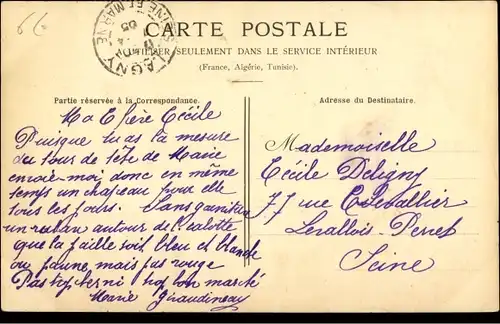 66
CARTE POSTALE
UTILISER SEULEMENT DANS LE SERVICE INTÉRIEUR
(France, Algérie, Tunisie).
LAGNY
SEINE ET MARNE
05
Partie réservée à la Correspondance.
Adresse du Destinataire.
Ma Chère Cécile
Puisque tu as la mesure
du tour de tête de Marie
envoie-moi donc en même
temps un chapeau pour elle
tous les jours. Sans garniture
un ruban autour de calotte
que la paille soit bleu et blanche
ou jaune, mais pas rouge
Pas trop cher ni trop bon marché
Marie Giraudineau
Mademoiselle
Cécile Deligny
77 rue Chevallier
Levallois-Perret
Seine